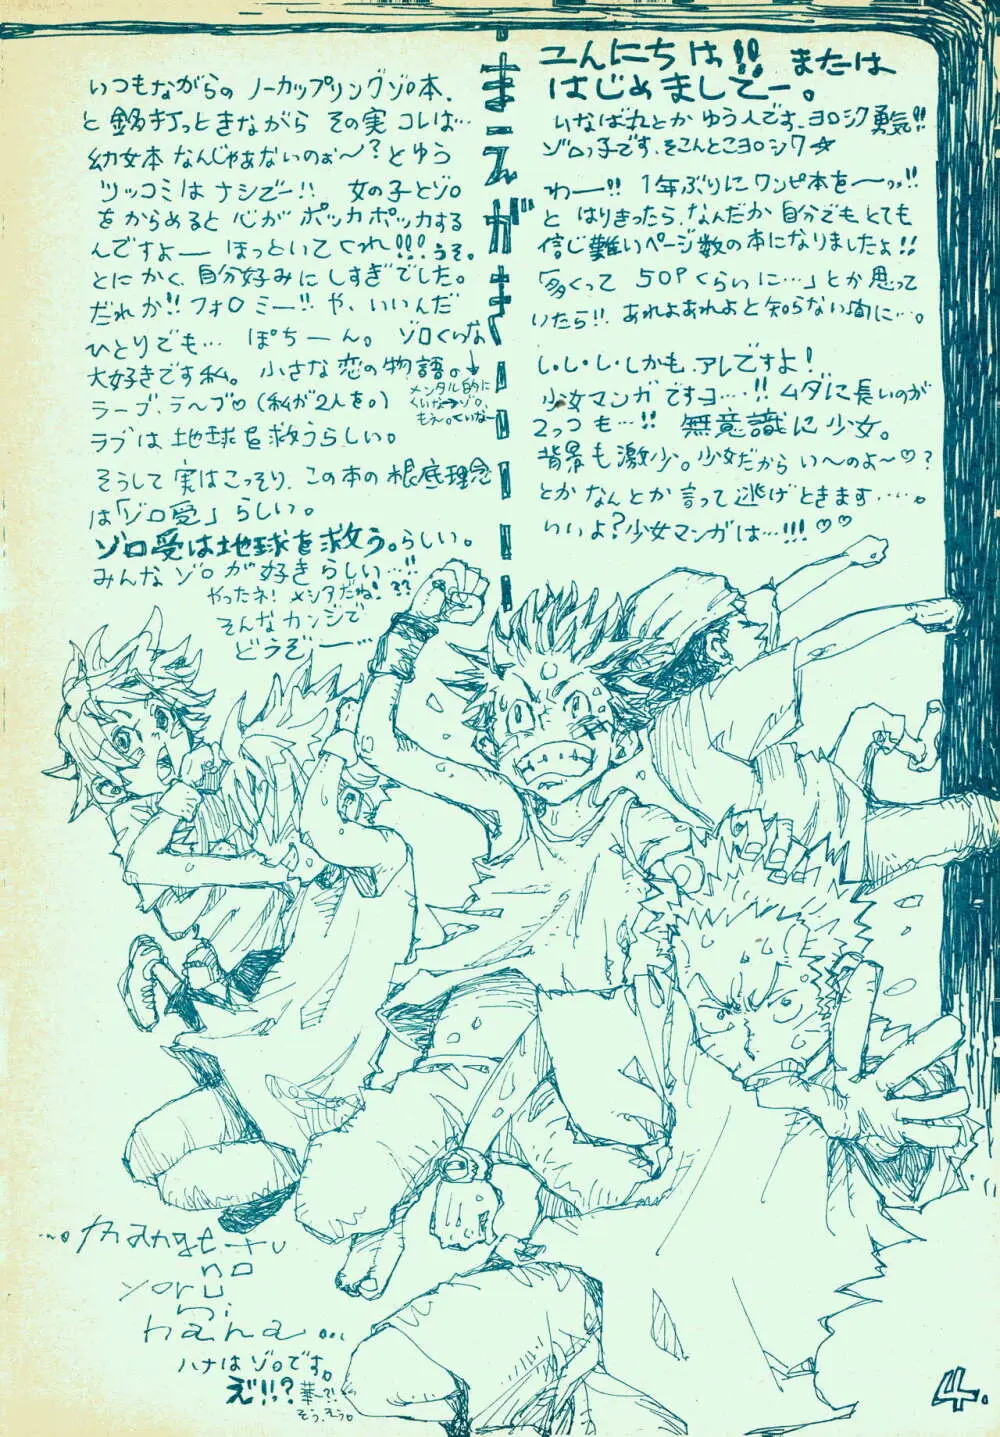 まーえがき
こんにちは!! または
はじめましてー。
いなば丸とかゆう人です、ヨロシク勇気!!
ゾロっ子です、そこんとこヨロシク☆
わー!! 1年ぶりにワンピ本を〜っっ!!
と はりきったら、なんだか自分でもとても
信じ難いページ数の本になりましたよ!!
「多くって 50Pくらいに…」とか思って
いたら!! あれよあれよと知らない間に…。
し・し・し・しかも、アレですよ!
少女マンガですヨ…!! ムダに長いのが
2っつも…!! 無意識に少女。
背景も激少。少女だから い〜のよ〜♡?
とかなんとか言って逃げときます……。
いいよ?少女マンガは…!!! ♡♡
いつもながらの ノーカップリングゾロ本、
と銘打っときながら その実 コレは…
幼女本なんじゃあないのぉ〜?とゆう
ツッコミはナシでー!! 女の子とゾロ
をからめると 心が ポッカポッカする
んですよー ほっといてくれ!!! うそ。
とにかく、自分好みにしすぎでした。
だれか!! フォロミー!! や、いいんだ
ひとりでも… ぽちーん。 ゾロくいな
大好きです私。 小さな恋の物語。
メンタル的に
くいな→ゾロ。
もえ。くいなー
ラーブ、ラ〜ブ♡(私が2人を。)
ラブは 地球を救うらしい。
そうして 実はこっそり、この本の根底理念
は「ゾロ受」らしい。
ゾロ受は地球を救う。らしい。
みんな ゾロが好きらしい…!!
やったネ! メシアだね!??
そんなカンジで
どうぞー…
...mangetu
no
yoru
ni
hana...
ハナはゾロです。
え!!っ? 華ー?!
そう、そう。
4.